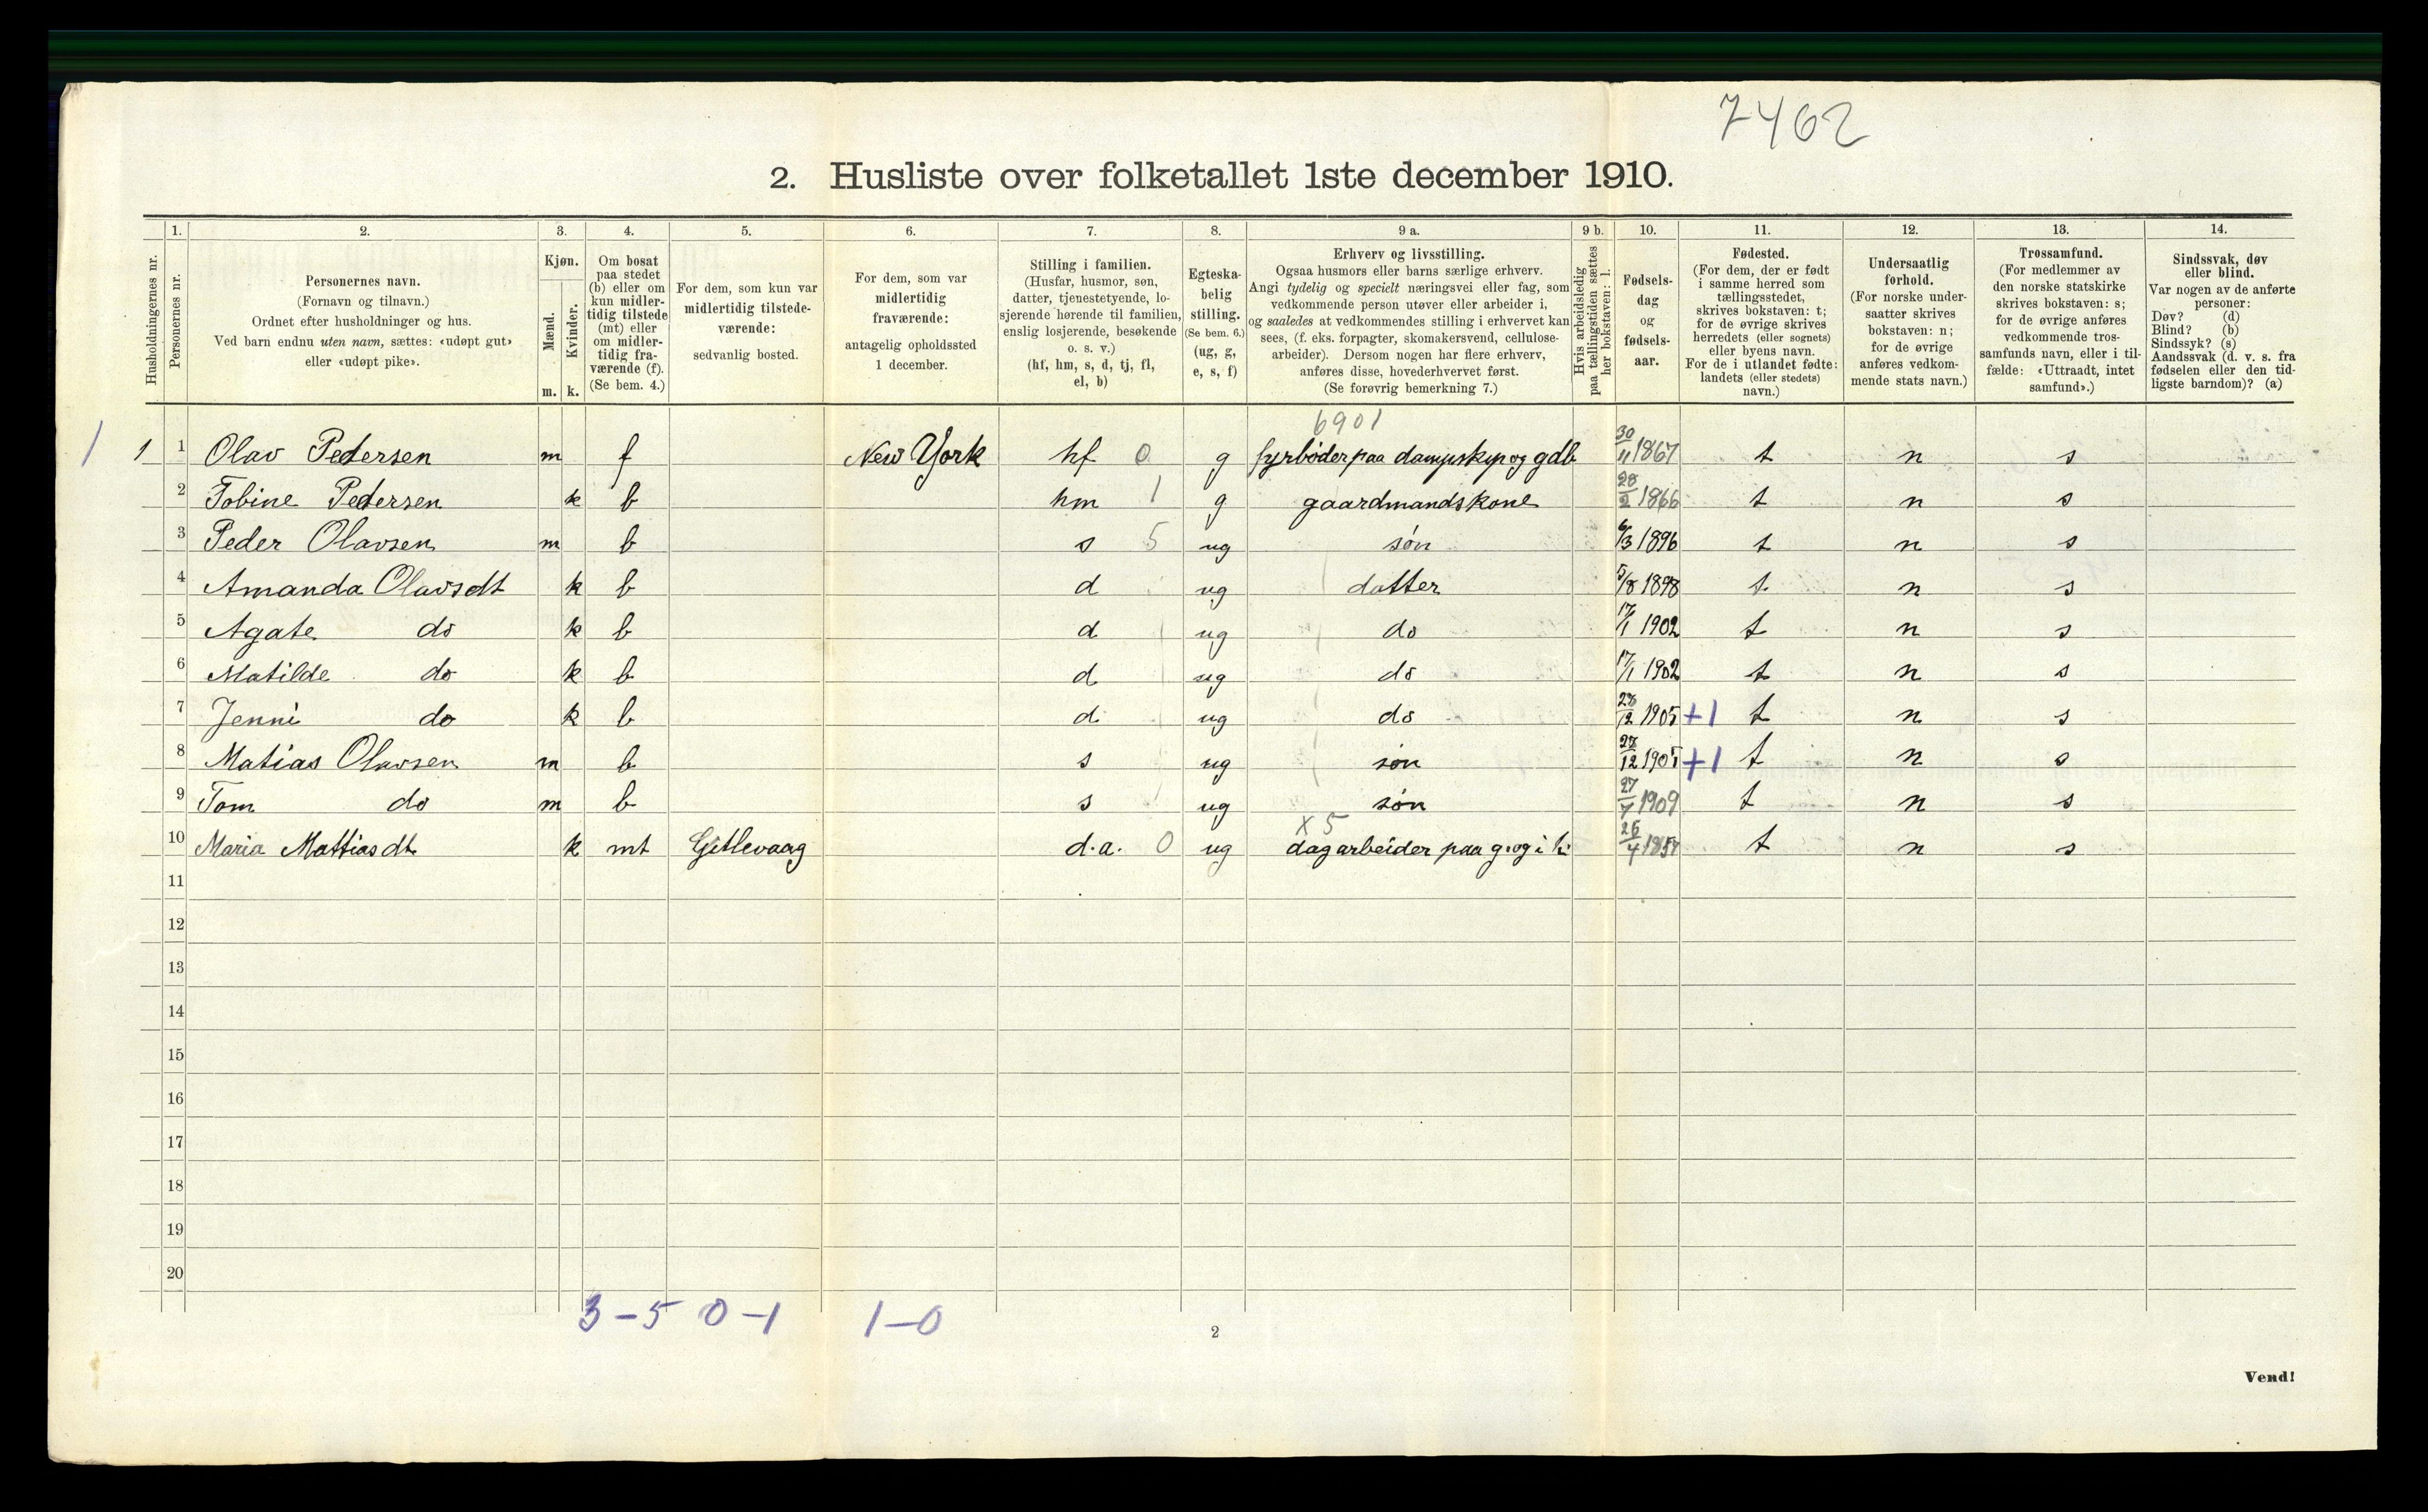 7462
2. Husliste over folketallet 1ste december 1910.
1. 2. 3. 4. 5. 6. 7. 8. 9 a. 9 b. 10. 11. 12. 13. 14.
Husholdningernes nr.
Personernes nr.
Personernes navn.
(Fornavn og tilnavn.)
Ordnet efter husholdninger og hus.
Ved barn endnu uten navn, sættes: «udøpt gut»
eller «udøpt pike».
Kjøn.
Mænd.
Kvinder.
m. k.
Om bosat
paa stedet
(b) eller om
kun midler-
tidig tilstede
(mt) eller
om midler-
tidig fra-
værende (f).
(Se bem. 4.)
For dem, som kun var
midlertidig tilstede-
værende:
sedvanlig bosted.
For dem, som var
midlertidig
fraværende:
antagelig opholdssted
1 december.
Stilling i familien.
(Husfar, husmor, søn,
datter, tjenestetyende, lo-
sjerende hørende til familien,
enslig losjerende, besøkende
o. s. v.)
(hf, hm, s, d, tj, fl,
el, b)
Egteska-
belig
stilling.
(Se bem. 6.)
(ug, g,
e, s, f)
Erhverv og livsstilling.
Ogsaa husmors eller barns særlige erhverv.
Angi tydelig og specielt næringsvei eller fag, som
vedkommende person utøver eller arbeider i,
og saaledes at vedkommendes stilling i erhvervet kan
sees, (f. eks. forpagter, skomakersvend, cellulose-
arbeider). Dersom nogen har flere erhverv,
anføres disse, hovederhvervet først.
(Se forøvrig bemerkning 7.)
Hvis arbeidsledig
paa tællingstiden sættes
her bokstaven: l.
Fødsels-
dag
og
fødsels-
aar.
Fødested.
(For dem, der er født
i samme herred som
tællingsstedet,
skrives bokstaven: t;
for de øvrige skrives
herredets (eller sognets)
eller byens navn.
For de i utlandet fødte:
landets (eller stedets)
navn.)
Undersaatlig
forhold.
(For norske under-
saatter skrives
bokstaven: n;
for de øvrige
anføres vedkom-
mende stats navn.)
Trossamfund.
(For medlemmer av
den norske statskirke
skrives bokstaven: s;
for de øvrige anføres
vedkommende tros-
samfunds navn, eller i til-
fælde: «Uttraadt, intet
samfund».)
Sindssvak, døv
eller blind.
Var nogen av de anførte
personer:
Døv? (d)
Blind? (b)
Sindssyk? (s)
Aandssvak (d. v. s. fra
fødselen eller den tid-
ligste barndom)? (a)
6901
1 1 1 Olav Pedersen m f New York hf 0 g fyrbøder paa dampskip og gdb 30/11 1867 t n s
2 Tobine Pedersen k b hm 1 g gaardmandskone 28/2 1866 t n s
3 Peder Olavsen m b s 5 ug søn 6/3 1896 t n s
4 Amanda Olavsdt k b d ug datter 5/8 1898 t n s
5 Agate do k b d ug do 17/1 1902 t n s
6 Matilde do k b d ug do 17/1 1902 t n s
7 Jenni do k b d ug do 12 1905 +1 t n s
8 Matias Olavsen m b s ug søn 12 1905 +1 t n s
9 Tom do m b s ug søn 27/7 1909 t n s
x 5
10 Maria Mattiasdt k mt Gitlevaag d.a. 0 ug dagarbeider paa g. og i h. 4 t n s
11
12
13
14
15
16
17
18
19
20
3-5 0-1 1-0
2
Vend!